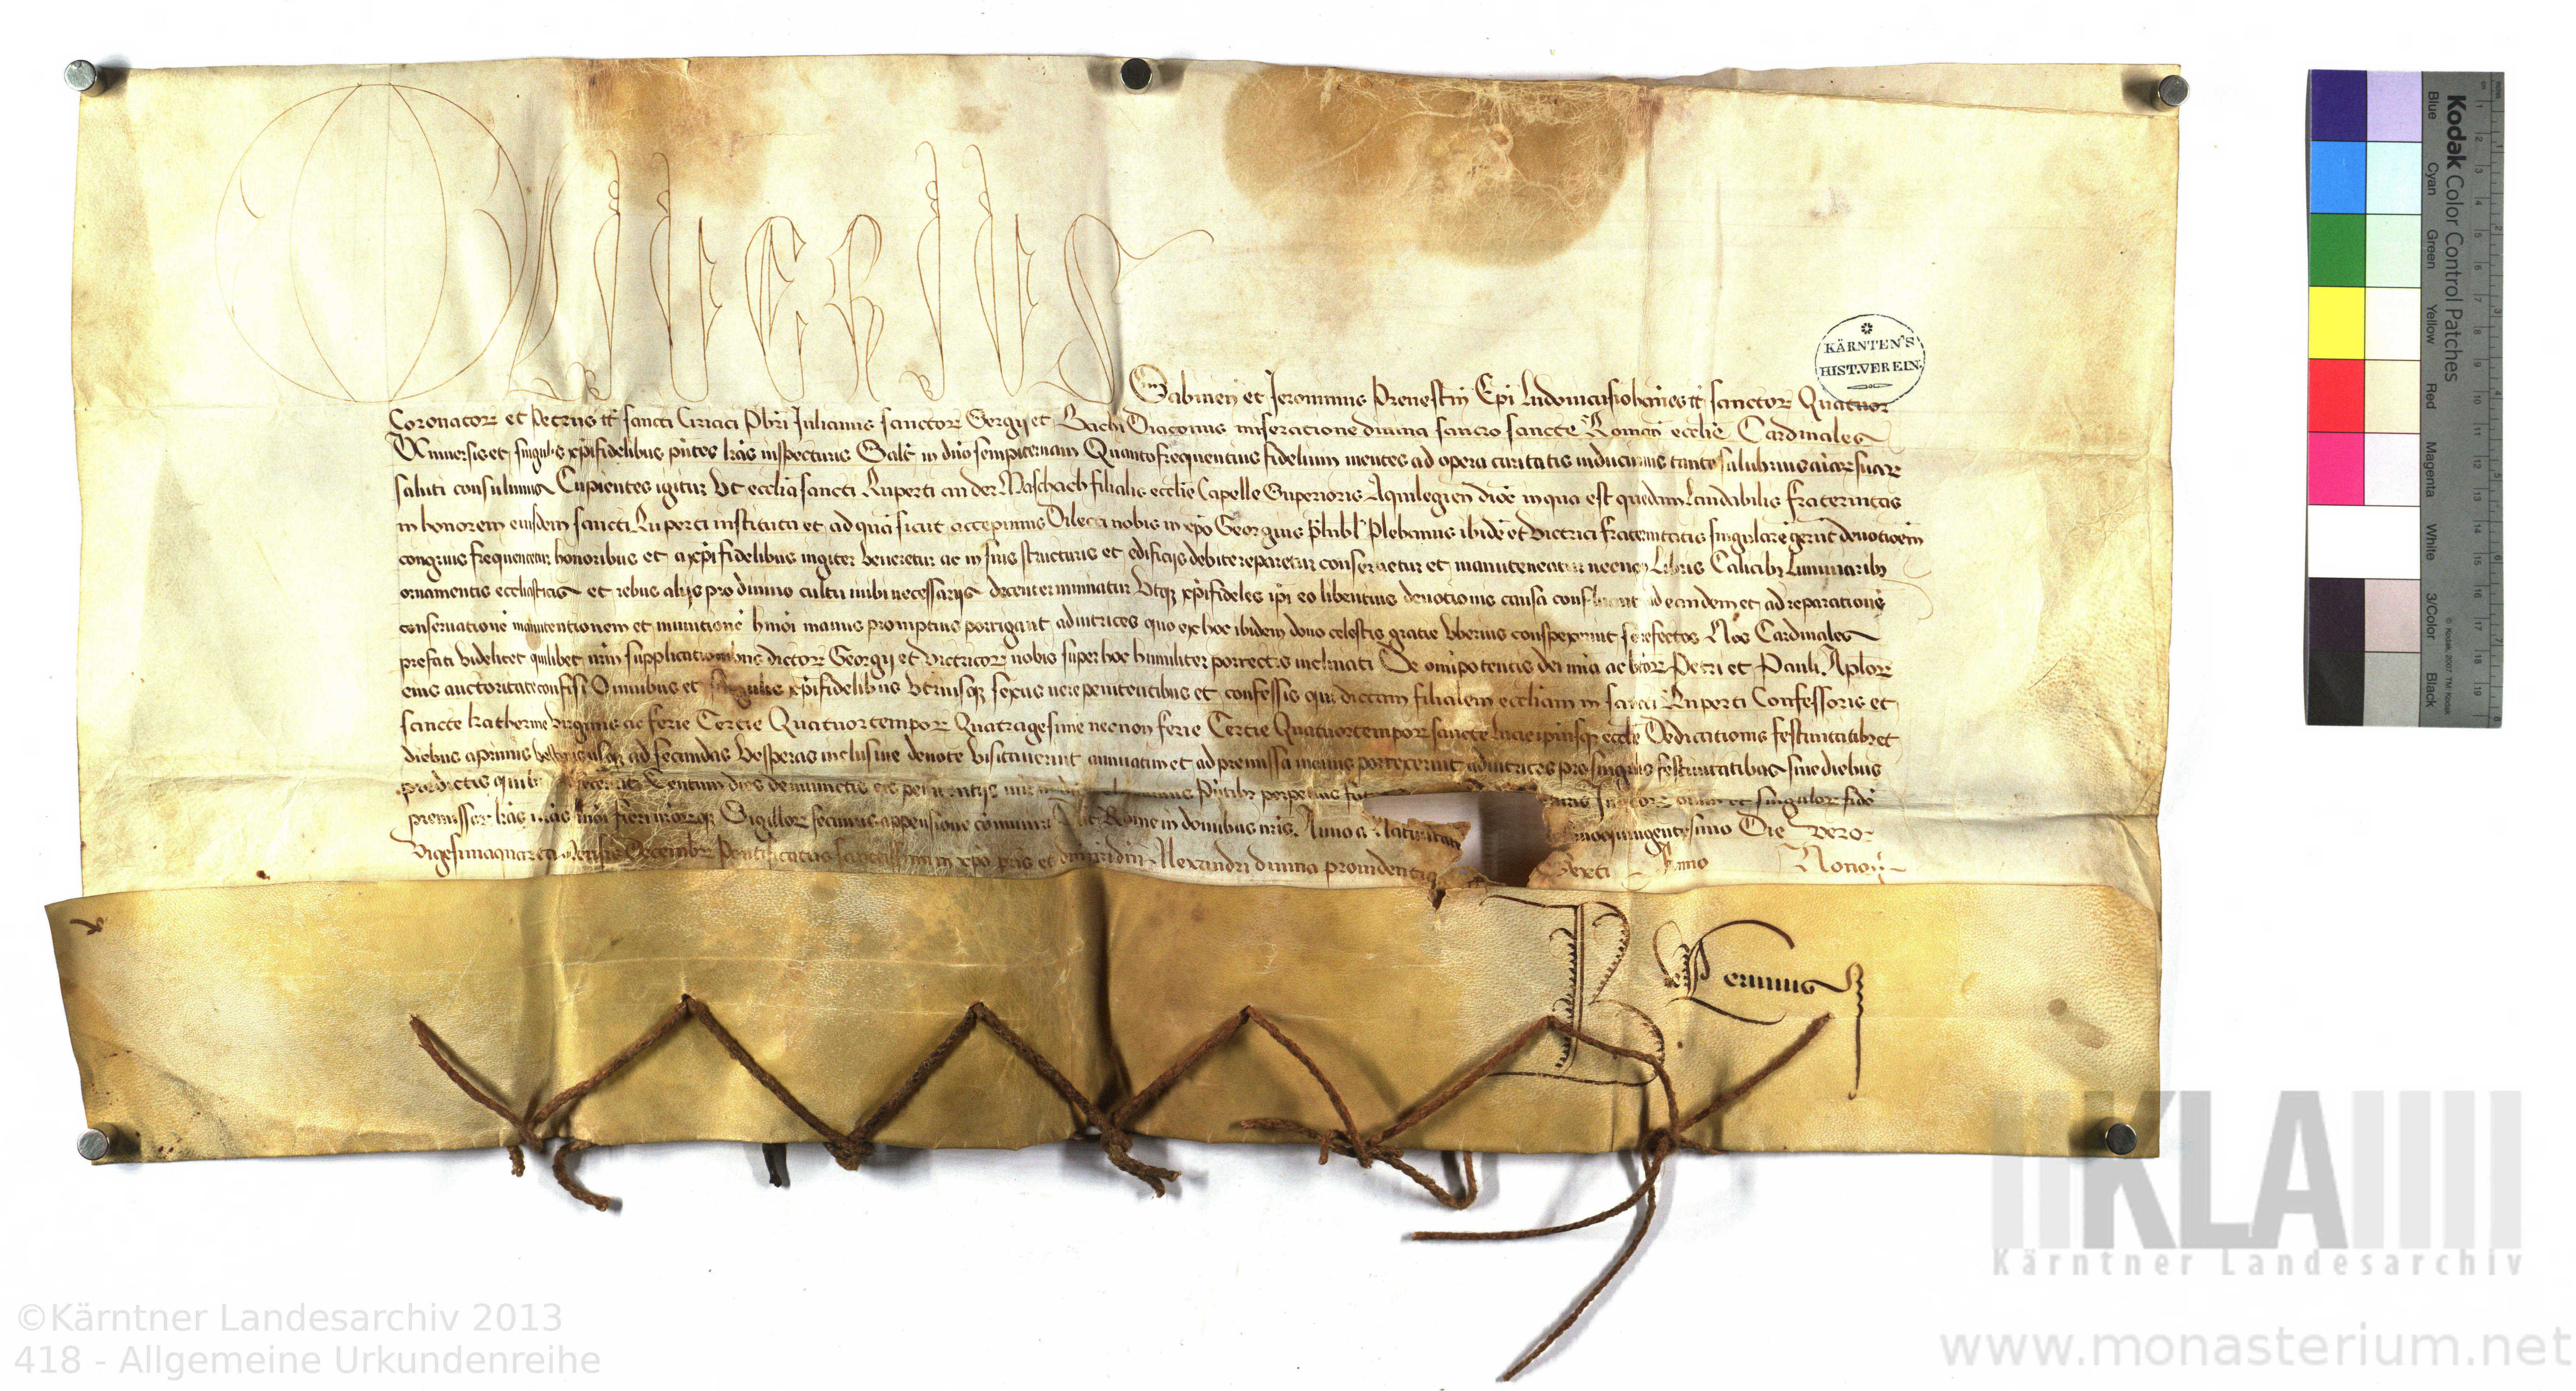 OLIUERIUS
Sabineñ et Jeronimus Prenestin̄ Ep̄i Ludouicus Joha͞nes tt̄ sanctoꝝ Quatuor
Coronatoꝝ et Petrus tt̄ sancti Ciriaci Pb̄ri Julianus sanctoꝝ Sergij et Bachi Diaconus miseratione diuina sacrosancte Romañ ecclie Cardinales
Vniuersis et singulis xp̄ifidelibus p̄ntes lr̄as inspecturis Salt̄ in dn̄o sempiternam Quanto frequentius fidelium mentes ad opera caritatis inducimus tanto salubrius aīaꝝ suaꝝ
saluti consulimus Cupientes igitur Vt ecclīa sancti Ruperti an der Raschach filialis ecclīe Capelle Superioris Aquilegieñ dioc̄ in qua est quedam laudabilis fraternitas
in honorem eiusdem sancti Ruperti instituta et ad quā sicut accepimus Dilecti nobis in xp̄o Georgius Plebanus ibidē et victrici fraternitatis singularē gerūt deuotioēm
congruis frequentetur honoribus et a xp̄ifidelibus iugiter veneretur ac in suis structuris et edificijs debite reparetur conseruetur et manuteneatur necnon Libris Calicibꝫ Luminaribꝫ
ornamentis eccliasticis et rebus alijs pro diuino cultu inibi necessarijs decenter muniatur Vtqꝫ xp̄ifideles ip̄i eo libentius deuotionis causa confluant ad eandem et ad reparationē
conseruationē manutentionem et munitionē hm̄oi manus promptius porrigant adiutrices quo ex hoc ibidem dono celestis gratie vberius conspexerint se refectos Nos Cardinales
prefati videlicet quilibet nr̄m supplicationibus dictoꝝ Georgij et victricoꝝ nobis super hoc humiliter porrectis inclinati De om̄ipotentis dei mīa ac btōꝝ Petri et Pauli Apl̄oꝝ
eius auctoritate confisi Omnibus et singulis xp̄ifidelibus vtriusqꝫ sexus vere penitentibus et confessis qui dictam filialem eccliam in sancti Ruperti Confessoris et
sancte Katherine virginis ac ferie Tercie Quatuortempoꝝ Quatragesime necnon ferie Tercie Quatuortempoꝝ sancte Lucie ipiusqꝫ ecclīe Dedicationis festiuitatibꝫ et
diebus a primis vesperis vsqꝫ ad secundas vesperas inclusiue deuote visitauerint annuatim et ad premissa manus porrexerint adiutrices pro singulis festiuitatibus siue diebus
predictis quibus id fecerint Centum dies de iniunctis eis penitentijs p̄ntibꝫ perpetuis In quoꝝ om̄ et singuloꝝ fidē
premissoꝝ lr̄as nr̄as hm̄oi fieri nr̄oꝝqꝫ Sigilloꝝ fecimus appensione cōmuniri Dat̄ Rome in domibus nr̄is Anno a Natiuitate quingentesimo Die vero
Vigesimaquarta Mensis Decembr̄ Pontificatus sanctissimi in xp̄o pr̄is et dn̄i nr̄i dn̄i Alexandri diuina prouidentia Sexti Anno Nono
KÄRNTEN'S
HIST.VEREIN.
Kodak Color Control Patches
Blue Cyan Green Yellow Red Magenta White 3/Color Black
© Kodak, 2007 TM: Kodak
KLA
Kärntner Landesarchiv
©Kärntner Landesarchiv 2013
418 - Allgemeine Urkundenreihe
www.monasterium.net